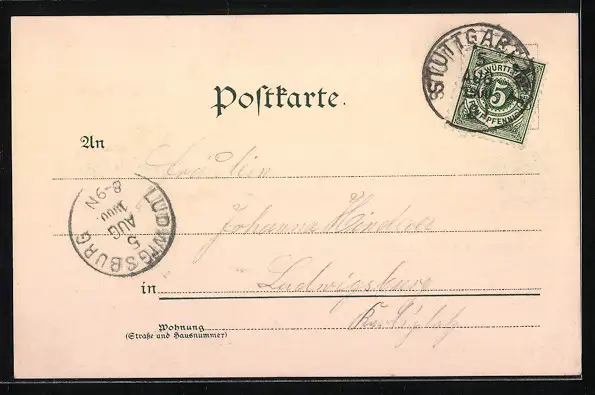 STUTTGART
5
AUG
WÜRTTEMB
5
FÜNF PFENNIG
Postkarte.
An
Fräulein
Johanna
LUDWIGSBURG
5
AUG
1900
8-9N
in Ludwigsburg
Wohnung
(Straße und Hausnummer)